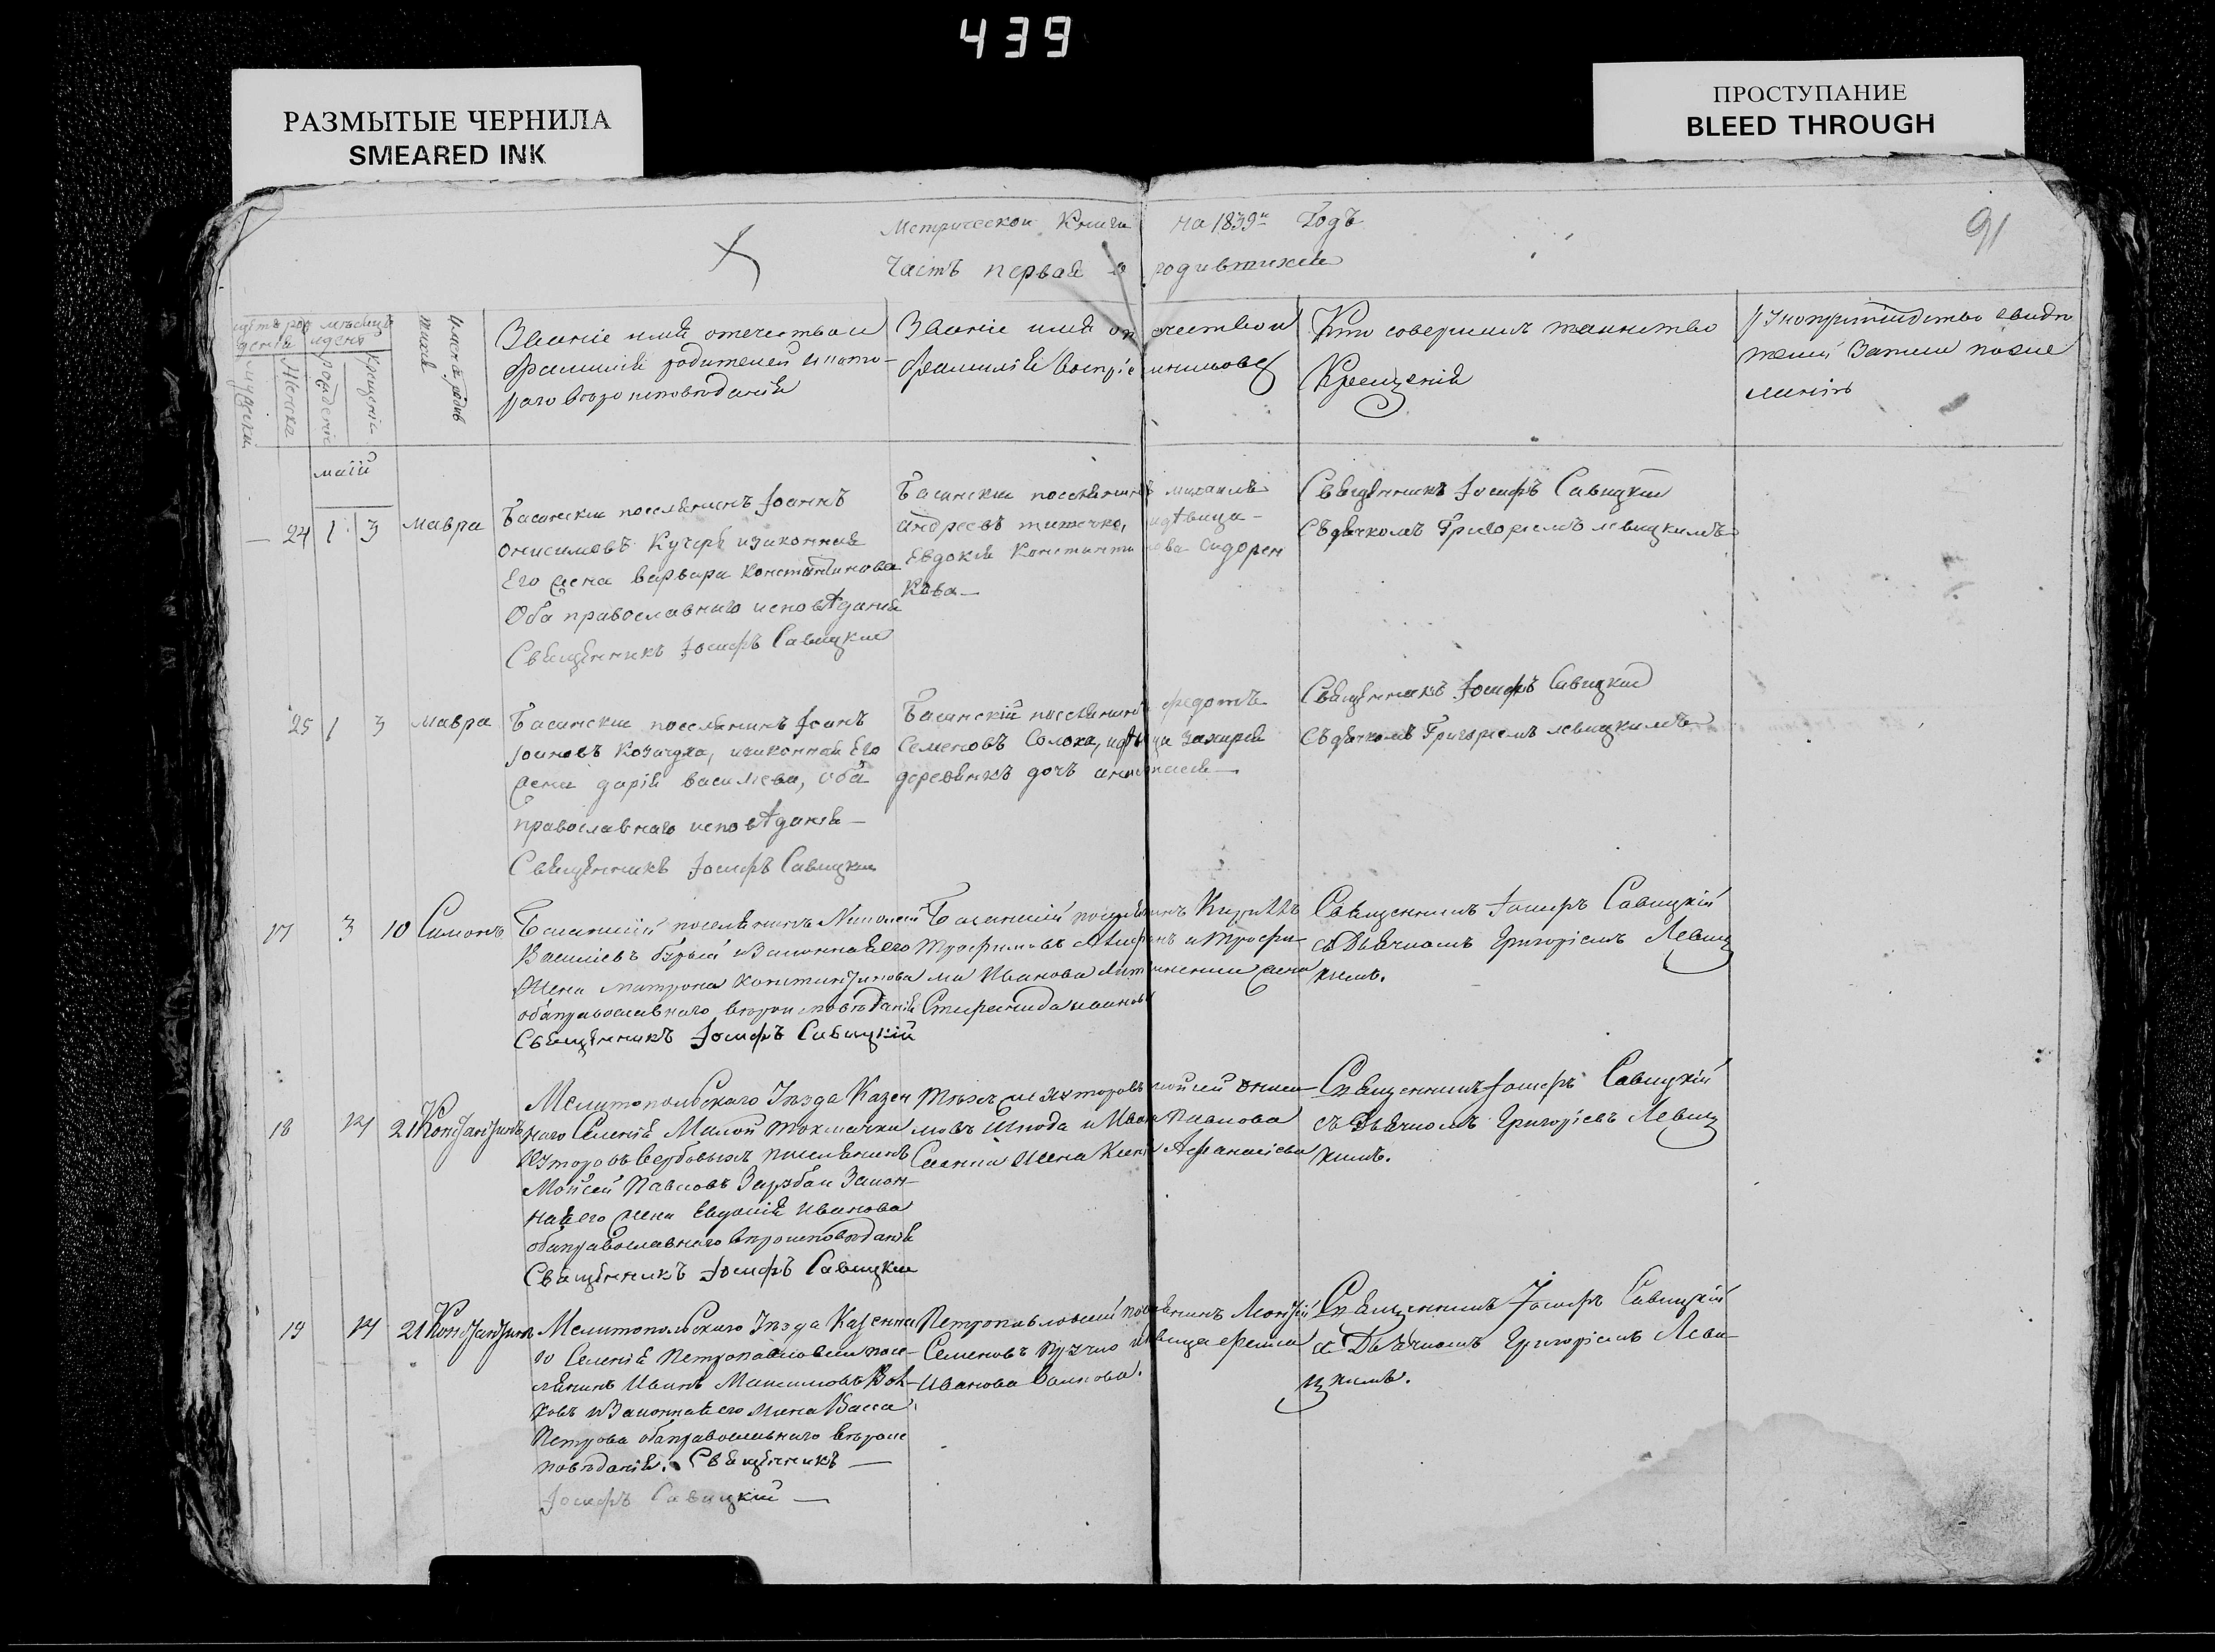 439
РАЗМЫТЫЕ ЧЕРНИЛА
SMEARED INK
ПРОСТУПАНИЕ
BLEED THROUGH
91
Метрической Книги на 1839й Годъ
Часть первая о родившихся
Званіе имя отечество и
фамилія родителей и кото-
раго вѣроисповѣданія
Званіе имя отчество и
фамилія воспріемниковъ
Кто совершилъ таинство
Крещенія
маія
24 1 3 Мавра
Басанскии поселянинъ Іоаннъ
Онисимовъ Кучеръ и законная
Его жена варвара константинова
Оба православнаго исповѣданія
Священникъ Іосифъ Савицкии
Басанскии поселянинъ михаилъ
андреевъ титечко, и дѣвица
Евдокія Константинова Сидорен
кова
Священникъ Іосифъ Савицкии
Съ дячкомъ Григоріемъ левицкимъ
25 1 3 Мавра
Басанскии поселянинъ Іоанъ
Іоановъ Козачухъ, и законная Его
жена дарія василева, оба
православнаго исповѣданія
Священникъ Іосифъ Савицкии
Басанскій поселянинъ федотъ
Семеновъ Солоха, и дѣвица захарія
деревянкъ дочъ анастасія
Священникъ Іосифъ Савицкии
Съ дячкомъ Григоріемъ левицкимъ
17 3 10 Симонъ
Басанский поселянинъ
Василіевъ и Законная его
Жена матрона Константинова
оба православнаго вѣроисповѣданія
Священникъ Іосифъ Савицкій
Басанский поселянинъ Кириллъ
Трофимовъ и Трофи-
ма Иванова жена
Степанида иванова
Священникъ Іосифъ Савицкій
съ Дьячкомъ Григоріемъ Левиц
кимъ.
18 14 21 Константинъ
Мелитопольскаго Уѣзда Казен
наго Селенія Малой токмачки
Хуторовъ Вербовыхъ поселянинъ
Мойсей Павловъ Законная его жена Евдокія Иванова
оба православнаго вѣроисповѣданія
Священникъ Іосифъ Савицкии
Тѣхъ же хуторовъ мойсей
и Ивана Иванова
жена Ксенія Афанасіева
Священникъ Іосифъ Савицкій
съ Дьячкомъ Григоріевъ Левиц
кимъ.
19 14 21 Константинъ
Мелитопольскаго Уѣзда Казенна
го Селенія Петропавловки посе-
лянинъ Иванъ Максимовъ
и Законная его жена Васса
Петрова оба православнаго вѣроис
повѣданія. Священникъ
Іосифъ Савицкій
Петропавловский поселянинъ
Семеновъ и дѣвица
Иванова
Священникъ Іосифъ Савицкій
съ Дьячкомъ Григоріемъ Леви-
цкимъ.